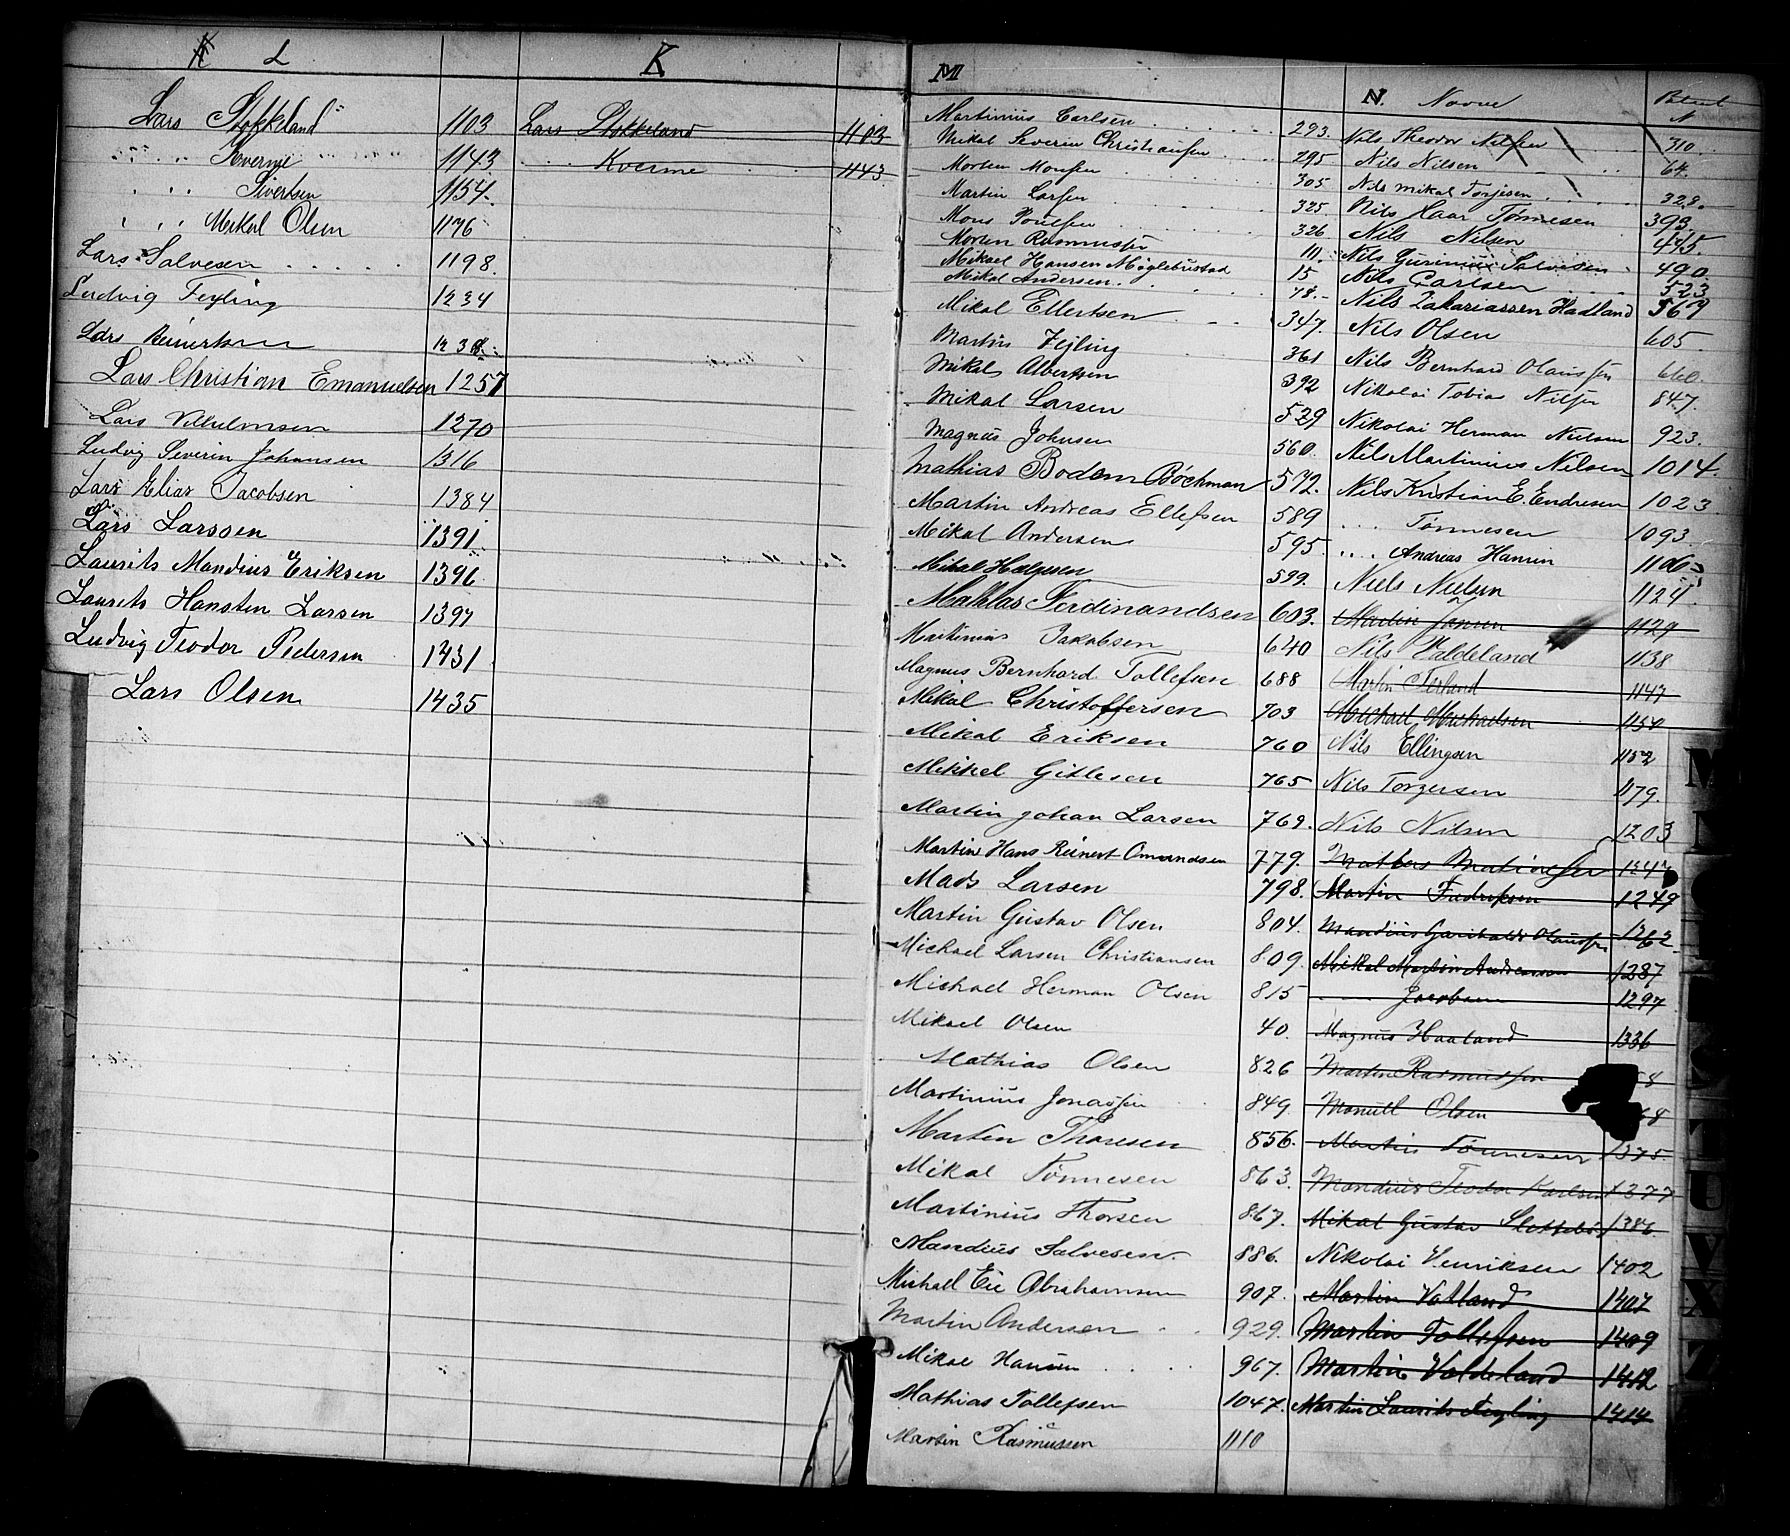 L
Lars Stokkeland 1103
" " Kverme " " 1143
" " Sivertsen 1154
" " Mikal Olsen 1176
Lars Salvesen 1198
Ludvig Feyling 1234
Lars Reinertsen
Lars Christian Emanuelsen 1257
Lars Vilhelmsen 1270
Ludvig Severin Johansen 1316
Lars Elias Jacobsen 1384
Lars Larssen 1391
Laurits Mandius Eriksen 1396
Laurits Hansten Larsen 1397
Ludvig Teodor Pedersen 1431
Lars Olsen 1435
K
Lars Stokkeland 1103
Kverme 1143
M
Martinius Carlsen 293.
Mikal Severin Christiansen 295
Morten Monsen 305
Martin Larsen 325
Mons Ponsen 326
Morten Rasmussen 111.
Mikael Hansen Møglebustad 15
Mikal Andersen 78.
Mikal Ellertsen 347.
Martin Fejling 361
Mikal Albertsen 392
Mikal Larsen 529
Magnus Johnsen 560.
Mathias Bodom Bøckman 572.
Martin Andreas Ellefsen 589
Mikal Andersen 595
Mikal Helgesen 599.
Mathias Ferdinandsen 603.
Martinius Jakobsen 640
Magnus Bernhard Tollefsen 688
Mikal Christoffersen 703
Mikal Eriksen 760
Mikkel Gitlesen 765
Martin Johan Larsen 769.
Martin Hans Reinert Omundsen 779.
Mads Larsen 798.
Martin Gustav Olsen 804.
Michael Larsen Christiansen 809.
Michael Herman Olsen 815
Mikael Olsen 40.
Mathias Olsen 826
Martinius Jonassen 849.
Martin Thoresen 856.
Mikal Tønnesen 863.
Martinius Thorsen 867.
Mandius Salvesen 886.
Michael Eie Abrahamsen 907.
Martin Andersen 929.
Mikal Hansen 967.
Mathias Tollefsen 1047.
Martin Rasmussen 1110
N. Navne
Nils Theodor Nilsen 710.
Nils Nilsen 64.
Nils Mikal Torjesen 328.
Nils Haar Tønnesen 393.
Nils Nilsen 445.
Nils Gurinius Salvesen 490
Nils Carlsen 523
Nils Zakariassen Hadland 569
Nils Olsen 605.
Nils Bernhard Olaussen 660.
Nikolai Tobias Nilsen 847.
Nikolai Herman Nielsen 923.
Nils Martinius Nilsen 1014.
Nils Kristian E. Endresen 1023
" " Tønnesen 1093
" " Andreas Hansen
Niels Nielsen 1124
Martin Jansen 1129
Nils Valdeland 1138
Martin Terland 1147
Michael Michaelsen 1150
Nils Ellingsen 1152
Nils Torgersen 1179.
Nils Nilsen 1203
Martin Fredriksen 1249
Mandius Garibaldi Olaussen 1262
Mikal Martin Andreassen 1287
Jacobsen 1297
Magnus Haaland 1336
Martin Rasmussen
Manuel Olsen
Martin Tønnesen 1375.
Mandius Teodor Karlsen 1377
Mikal Gustav Slettebø 1386.
Nikolai Henriksen 1402
Martin Vatland 1407
Martin Tollefsen 1409
Martin Valdeland 1412
Martin Laurits Feyling 1414